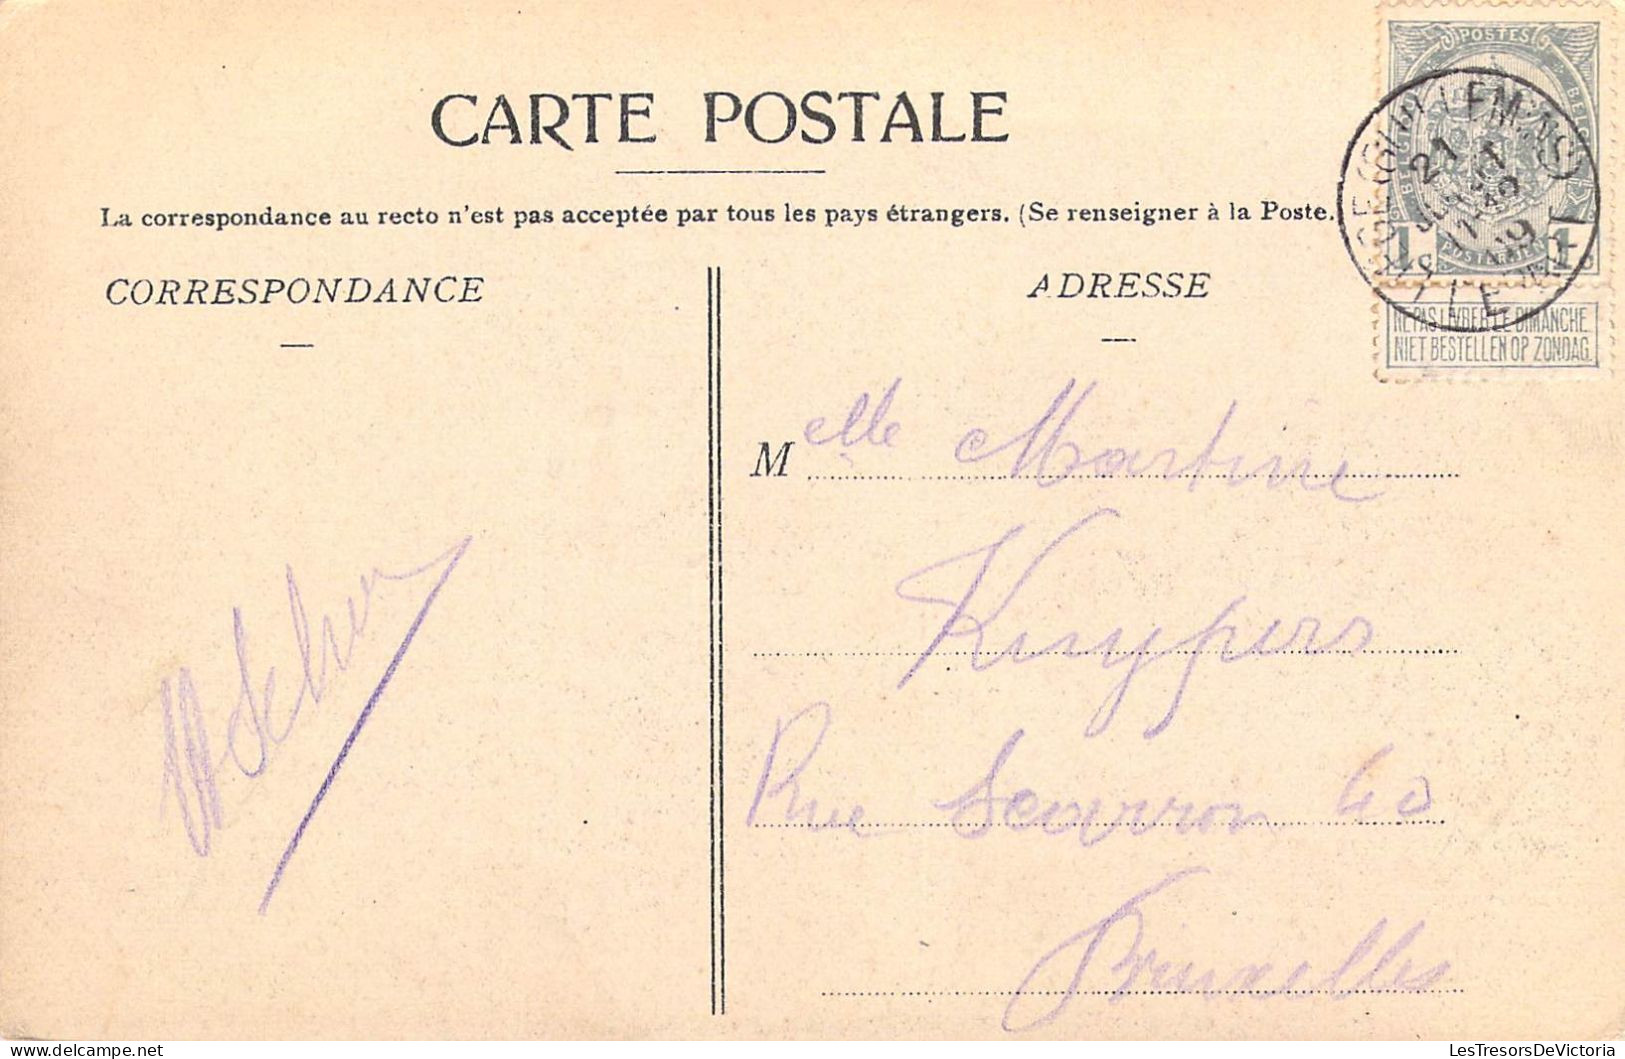 CARTE POSTALE
La correspondance au recto n'est pas acceptée par tous les pays étrangers. (Se renseigner à la Poste.)
CORRESPONDANCE
ADRESSE
POSTES
1 c 1 c
NE PAS LIVRER LE DIMANCHE
NIET BESTELLEN OP ZONDAG
(GUILLEMINS)
21
JUIN
Melle Martine
Kuypers
Rue Scarron 40
Bruxelles
LesTresorsDeVictoria